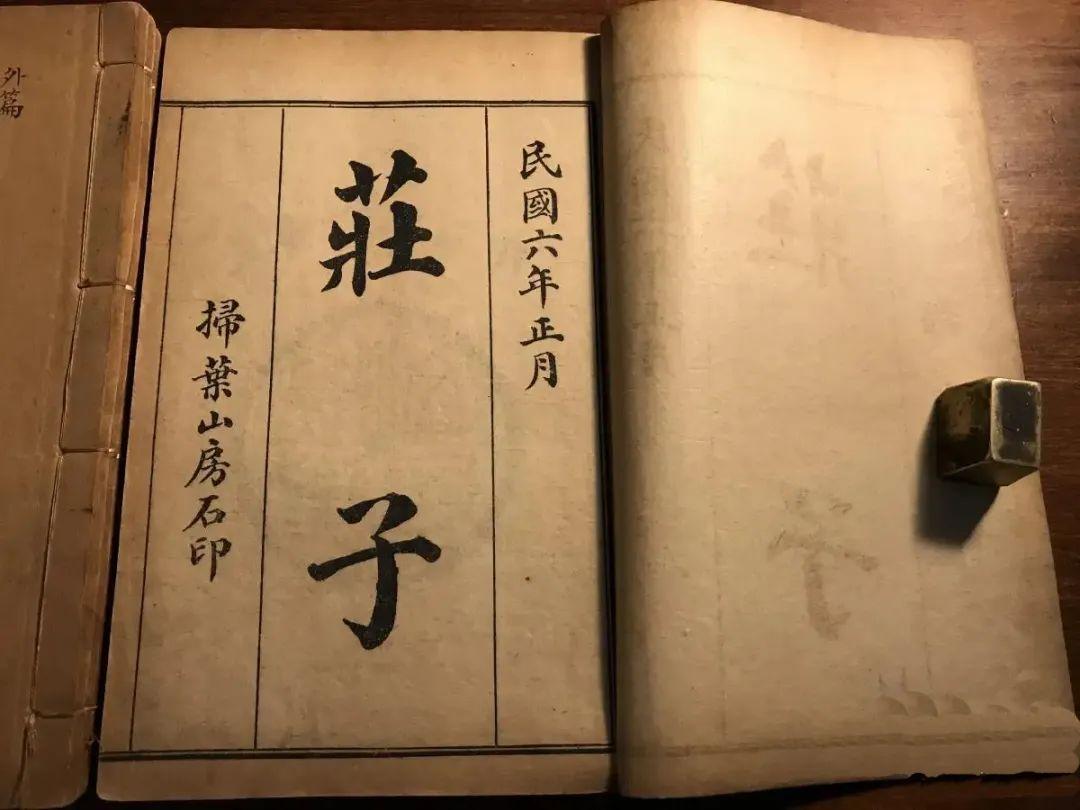 民國六年正月
莊子
掃葉山房石印
外篇